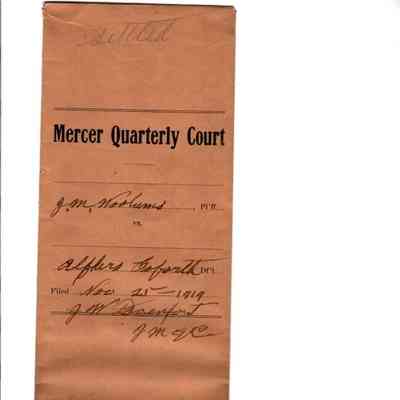 Settled
Mercer Quarterly Court
J. M. Woolums Pl'ff.
vs.
Goforth Df't.
Filed Nov 25 - 1919
J W Davenport
J M Q C